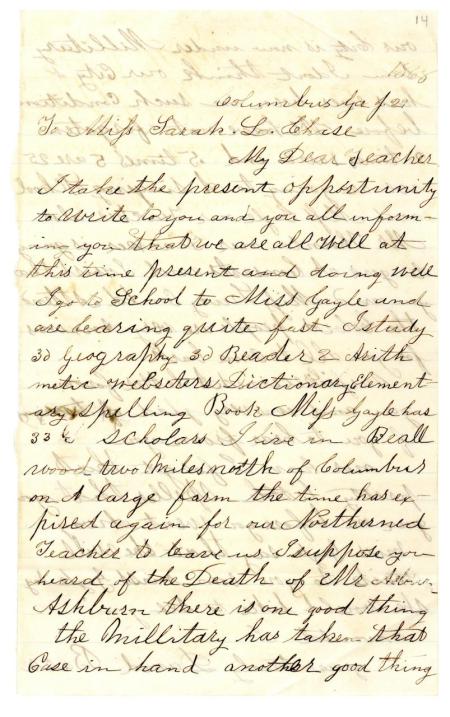 14
1868
Columbus Ga J. 29
To Miss Sarah. L. Chase
My Dear Teacher
I take the present opportunity
to write to you and you all inform-
ing you that we are all well at
this time present and doing well
I go to School to Miss Gayle und
are learing quite fast I study
3d Geography 3d Reader 2 Arith
metic websters Dictionary Element-
ary spelling Book Miss Gayle has
33 scholars I live in Beall
wood two miles north of Columbus
on A large farm the time has ex-
pired again for our Northerned
Teacher to leave us I suppose you
heard of the Death of Mr
Ashburn there is one good thing
the millitary has taken that
Case in hand another good thing